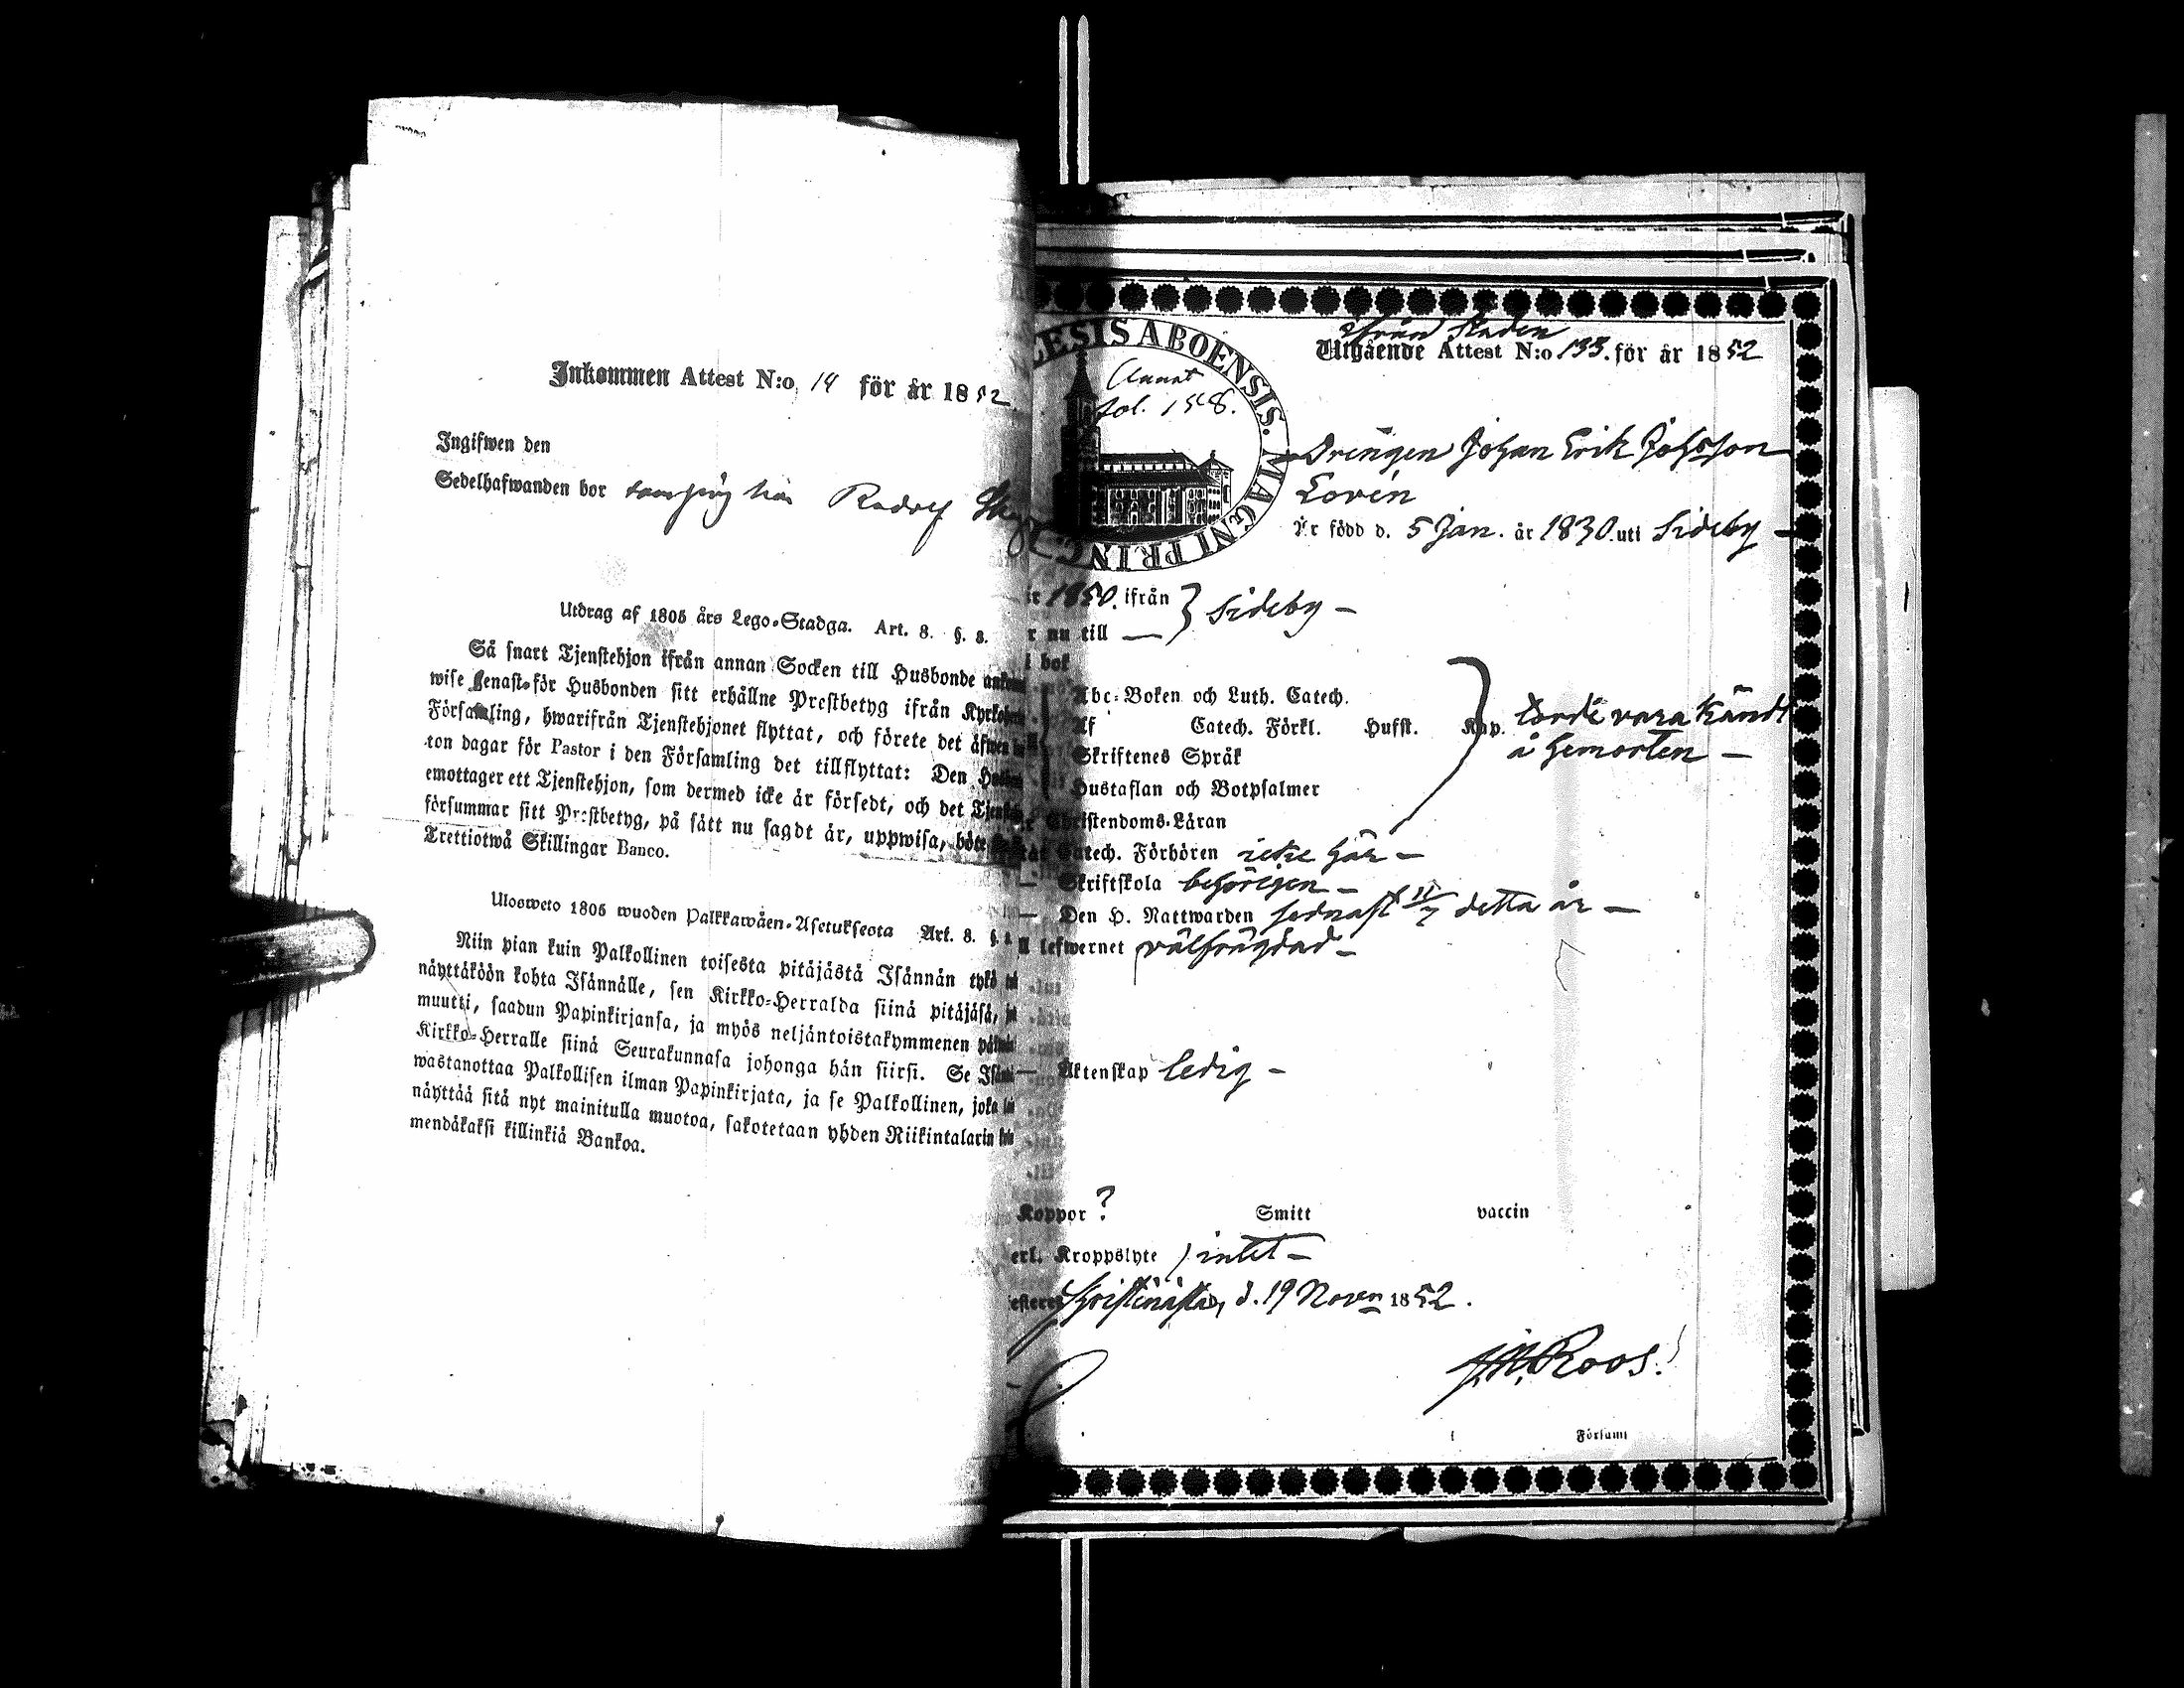 Inkommen Attest N:o 14 för år 1852
Ingifwen den
Sedelhafwanden bor Rudolf
Utdrag af 1805 års Lego-Stadga. Art. 8. §. 8.
Så snart Tjenstehjon ifrån annan Socken till Husbonde
wise senast för Husbonden sitt erhållne Prestbetyg ifrån
Församling, hwarifrån Tjenstehjonet flyttat, och förete det
ton dagar för Pastor i den Församling det tillflyttat: Den
emottager ett Tjenstehjon, som dermed icke är försedt, och det
försummar sitt Prestbetyg, på sätt nu sagdt är, uppwisa, böte
Trettiotwå Skillingar Banco.
Ulosweto 1805 wuoden Palkkawäen-Asetuksesta Art. 8. §.
Niin pian kuin Palkollinen toisesta pitäjästä Isännän tykö
näyttäköön kohta Isännälle, sen Kirkko-Herralda siinä pitäjäsä,
muutti, saadun Papinkirjansa, ja myös neljäntoistakymmenen
Kirkko-Herralle siinä Seurakunnasa johonga hän siirsi. Se
wastanottaa Palkollisen ilman Papinkirjata, ja se Palkollinen, joka
näyttää sitä nyt mainitulla muotoa, sakotetaan yhden Riikintalarin
mendäkaksi killinkiä Bankoa.
ESIS ABOENSIS. MAGNI PRINC
ifrån staden
Utgående Attest N:o 133. för år 1852
Annat
fol. 158.
Drängen Johan Erik Johsson
Lovén
Är född d. 5 Jan. år 1830. uti Sideby
1850. ifrån } Sideby
nu till
bok
Abc-Boken och Luth. Catech.
Af Catech. Förkl. Hufst. Kap. torde vara kändt
å hemorten
Skriftenes Språk
Hustaflan och Botpsalmer
Christendoms-Läran
Catech. Förhören icke här
Skriftskola behörigen
Den H. Nattwarden sednast 11/7 detta år
lefwernet välfrägdad
Äktenskap ledig
Koppor ? Smitt vaccin
Kroppslyte intet
Kristinestad, d. 19 Novem 1852.
Roos.
Församl